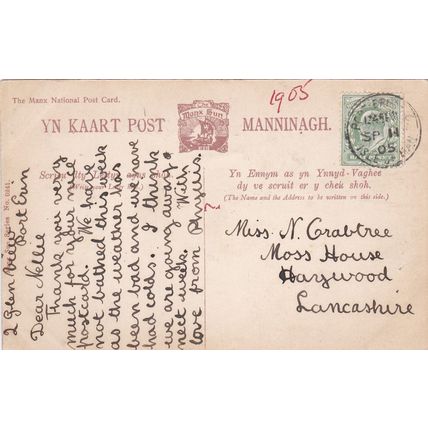 1905
The Manx National Post Card.
YN KAART POST
The
Manx Sun
MANNINAGH.
Yn Ennym as yn Ynnyd-Vaghee
dy ve scruit er y cheu shoh.
(The Name and the Address to be written on this side.)
2 Glen View
Port Erin
Dear Nellie
Thank you very
much for your nice
postcard. We have
not bathed this week
as the weather has
been bad and we have
had colds. I think
we are going away
next week. With
love from Phyllis.
Miss. N. Crabtree
Moss House
Haywood
Lancashire
SP 11
05